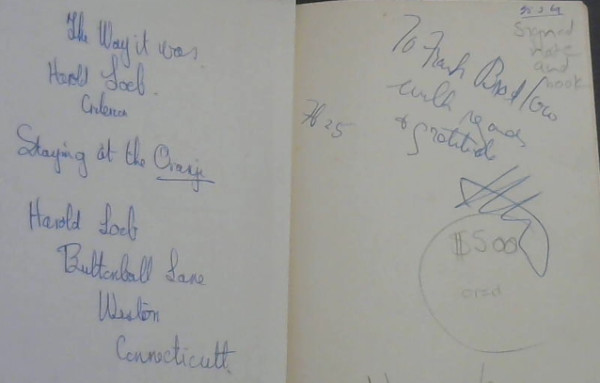 The Way it was.
Harold Loeb.
Criterion
Staying at the Oranje
Harold Loeb
Buttonball Lane
Weston
Connecticutt.
Signed
note
and
book
To Frank
with regards
& gratitude
$500